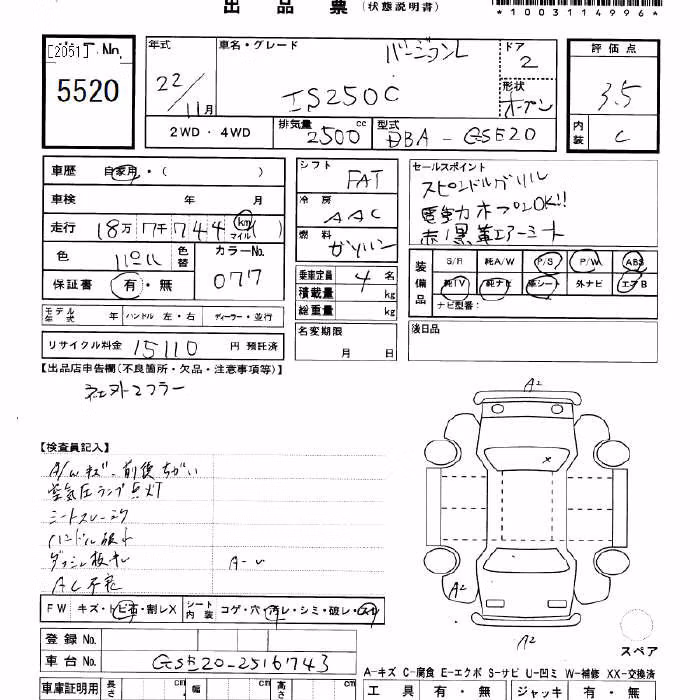 出品票 (状態説明書)
*1003114996*
[2051] No.
5520
年式 22/11月
車名・グレード バージョンL
IS250C
ドア 2
形状 オープン
評価点 3.5
内装 C
2WD・4WD
排気量 2500 cc
型式 DBA-GSE20
車歴 自家用・( )
車検 年 月
走行 18万7千744 (km マイル)
色 パール 色替 カラーNo. 077
保証書 有・無
シフト FAT
冷房 AAC
燃料 ガソリン
乗車定員 4 名
積載量 kg
総重量 kg
セールスポイント
スピンドルグリル
電動オープンOK!!
赤/黒革エアーシート
装備品 S/R 純A/W P/S P/W ABS
純TV 純ナビ 革シート 外ナビ エアB
ナビ型番:
モデル年式 年 ハンドル 左・右 ディーラー・並行
名変期限 月 日
後日品
リサイクル料金 15110 円 預託済
【出品店申告欄(不良箇所・欠品・注意事項等)】
社外マフラー
【検査員記入】
A/Wキズ 前後ちがい
空気圧ランプ点灯
シートスレ
ハンドル
ダッシュ板キレ
AC不良
A-U
A2
A2
A2
FW キズ・トビ石・割レX シート内装 コゲ・穴・汚レ・シミ・破レ・スレ
登録No.
車台No. GSE20-2516743
スペア
A-キズ C-腐食 E-エクボ S-サビ U-凹ミ W-補修 XX-交換済
車庫証明用 長さ cm 幅 cm 高さ cm
工具 有・無 ジャッキ 有・無